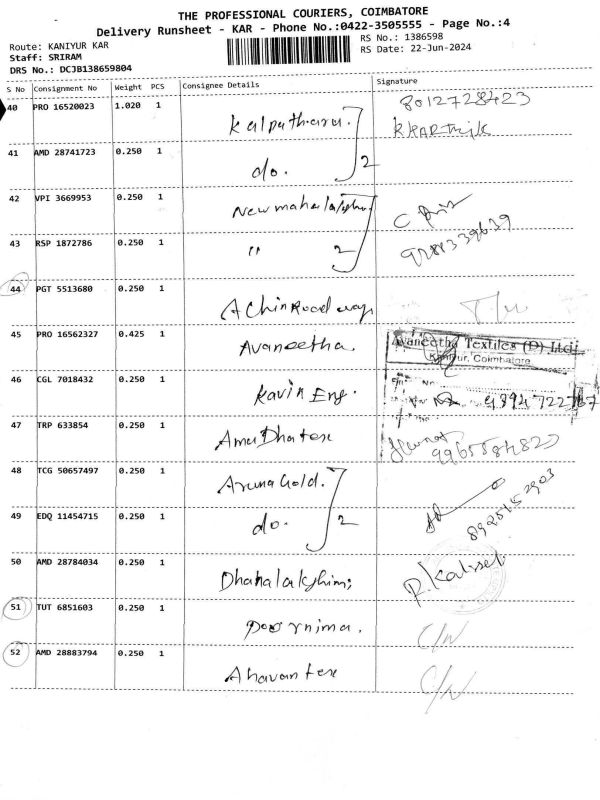 THE PROFESSIONAL COURIERS, COIMBATORE
Delivery Runsheet - KAR - Phone No.:0422-3505555 - Page No.:4
Route: KANIYUR KAR
RS No.: 1386598
Staff: SRIRAM
RS Date: 22-Jun-2024
DRS No.: DCJB138659804
S No Consignment No Weight PCS Consignee Details Signature
40 PRO 16520023 1.020 1 Kalpatharu. 8012728423
KKARthik
41 AMD 28741723 0.250 1 do. 2
42 VPI 3669953 0.250 1 New mahalakshmi
43 RSP 1872786 0.250 1 " 2
44 PGT 5513680 0.250 1 A Chin Roadways
45 PRO 16562327 0.425 1 Avaneetha. Avaneetha Textiles (P) Ltd.
Kaniyur, Coimbatore
46 CGL 7018432 0.250 1 Kavin Eng. 9894722767
47 TRP 633854 0.250 1
48 TCG 50657497 0.250 1 Aruna Gold.
49 EDQ 11454715 0.250 1 do. 2 8925152903
50 AMD 28784034 0.250 1 Dhanalakshimi
51 TUT 6851603 0.250 1 Poornima. C/N
52 AMD 28883794 0.250 1 C/N